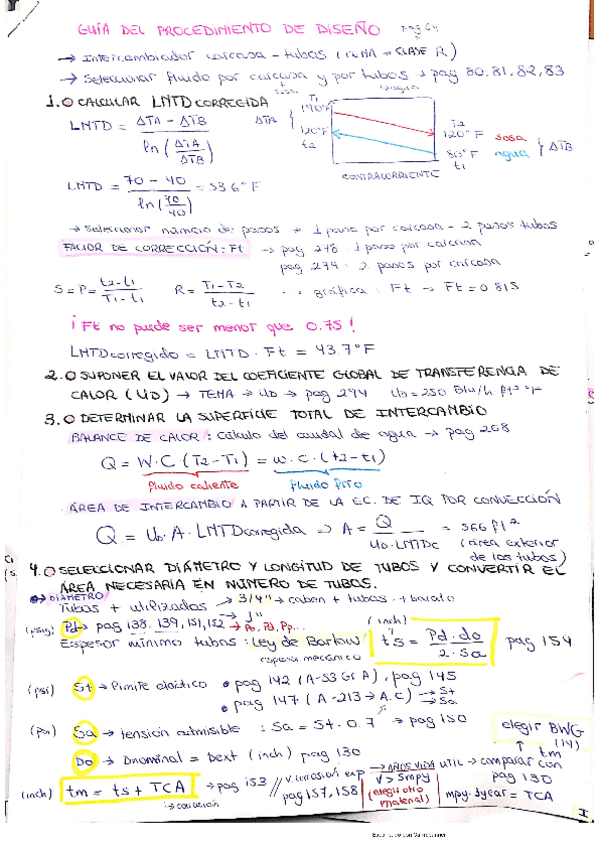 GUÍA DEL PROCEDIMIENTO DE DISEÑO pag 64
→ Intercambiador carcasa - tubos (TEMA → CLASE R)
→ Seleccionar fluido por carcasa y por tubos → pag 80, 81, 82, 83
sosa agua
1.○ CALCULAR LMTD CORREGIDA
LMTD = ΔTA - ΔTB / ln(ΔTA / ΔTB)
ΔTA { T1 190°F
120°F t2
T2 120°F sosa
80°F agua } ΔTB
t1
CONTRACORRIENTE
LMTD = 70 - 40 / ln(70/40) = 53.6°F
→ Seleccionar número de pasos → 1 paso por carcasa - 2 pasos tubos
FACTOR DE CORRECCIÓN: Ft → pag 278 : 1 paso por carcasa
pag 279 : 2 pasos por carcasa
S = P = t2-t1 / T1-t1 R = T1-T2 / t2-t1 gráfica : Ft → Ft = 0.815
¡Ft no puede ser menor que 0.75!
LMTD corregido = LMTD · Ft = 43.7°F
2.○ SUPONER EL VALOR DEL COEFICIENTE GLOBAL DE TRANSFERENCIA DE
CALOR (UD) → TEMA → UD → pag 294 UD = 250 Btu/h ft² °F
3.○ DETERMINAR LA SUPERFICIE TOTAL DE INTERCAMBIO
BALANCE DE CALOR : Cálculo del caudal de agua → pag 268
Q = W·C (T2-T1) = w·c·(t2-t1)
fluido caliente fluido frío
ÁREA DE INTERCAMBIO A PARTIR DE LA EC. DE IQ POR CONVECCIÓN
Q = UD·A·LMTD corregida ⇒ A = Q / UD·LMTDc = 566 ft²
(área exterior
de los tubos)
4.○ SELECCIONAR DIÁMETRO Y LONGITUD DE TUBOS Y CONVERTIR EL
ÁREA NECESARIA EN NÚMERO DE TUBOS.
→ DIÁMETRO
Tubos + utilizados → 3/4" → caben + tubos + barato
→ 1"
(psig) Pd → pag 138, 139, 151, 152 → Po, Pd, Pp...
Espesor mínimo tubos: 'Ley de Barlow' (inch) ts = Pd·do / 2·Sa pag 154
espesor mecánico
(psi) St → límite elástico • pag 142 (A-53 Gr A), pag 145
• pag 147 (A-213 → A.C) → St
→ Sa
(psi) Sa → tensión admisible : Sa = St · 0.7 → pag 150
elegir BWG
(14)
Do → Dnominal = Dext (inch) pag 130
→ AÑOS VIDA UTIL → comparar con tm
pag 130
(inch) tm = ts + TCA → pag 153 // v. corrosión exp
pag 157, 158
→ corrosión
V > 5mpy
(elegir otro
material)
mpy · year = TCA
I